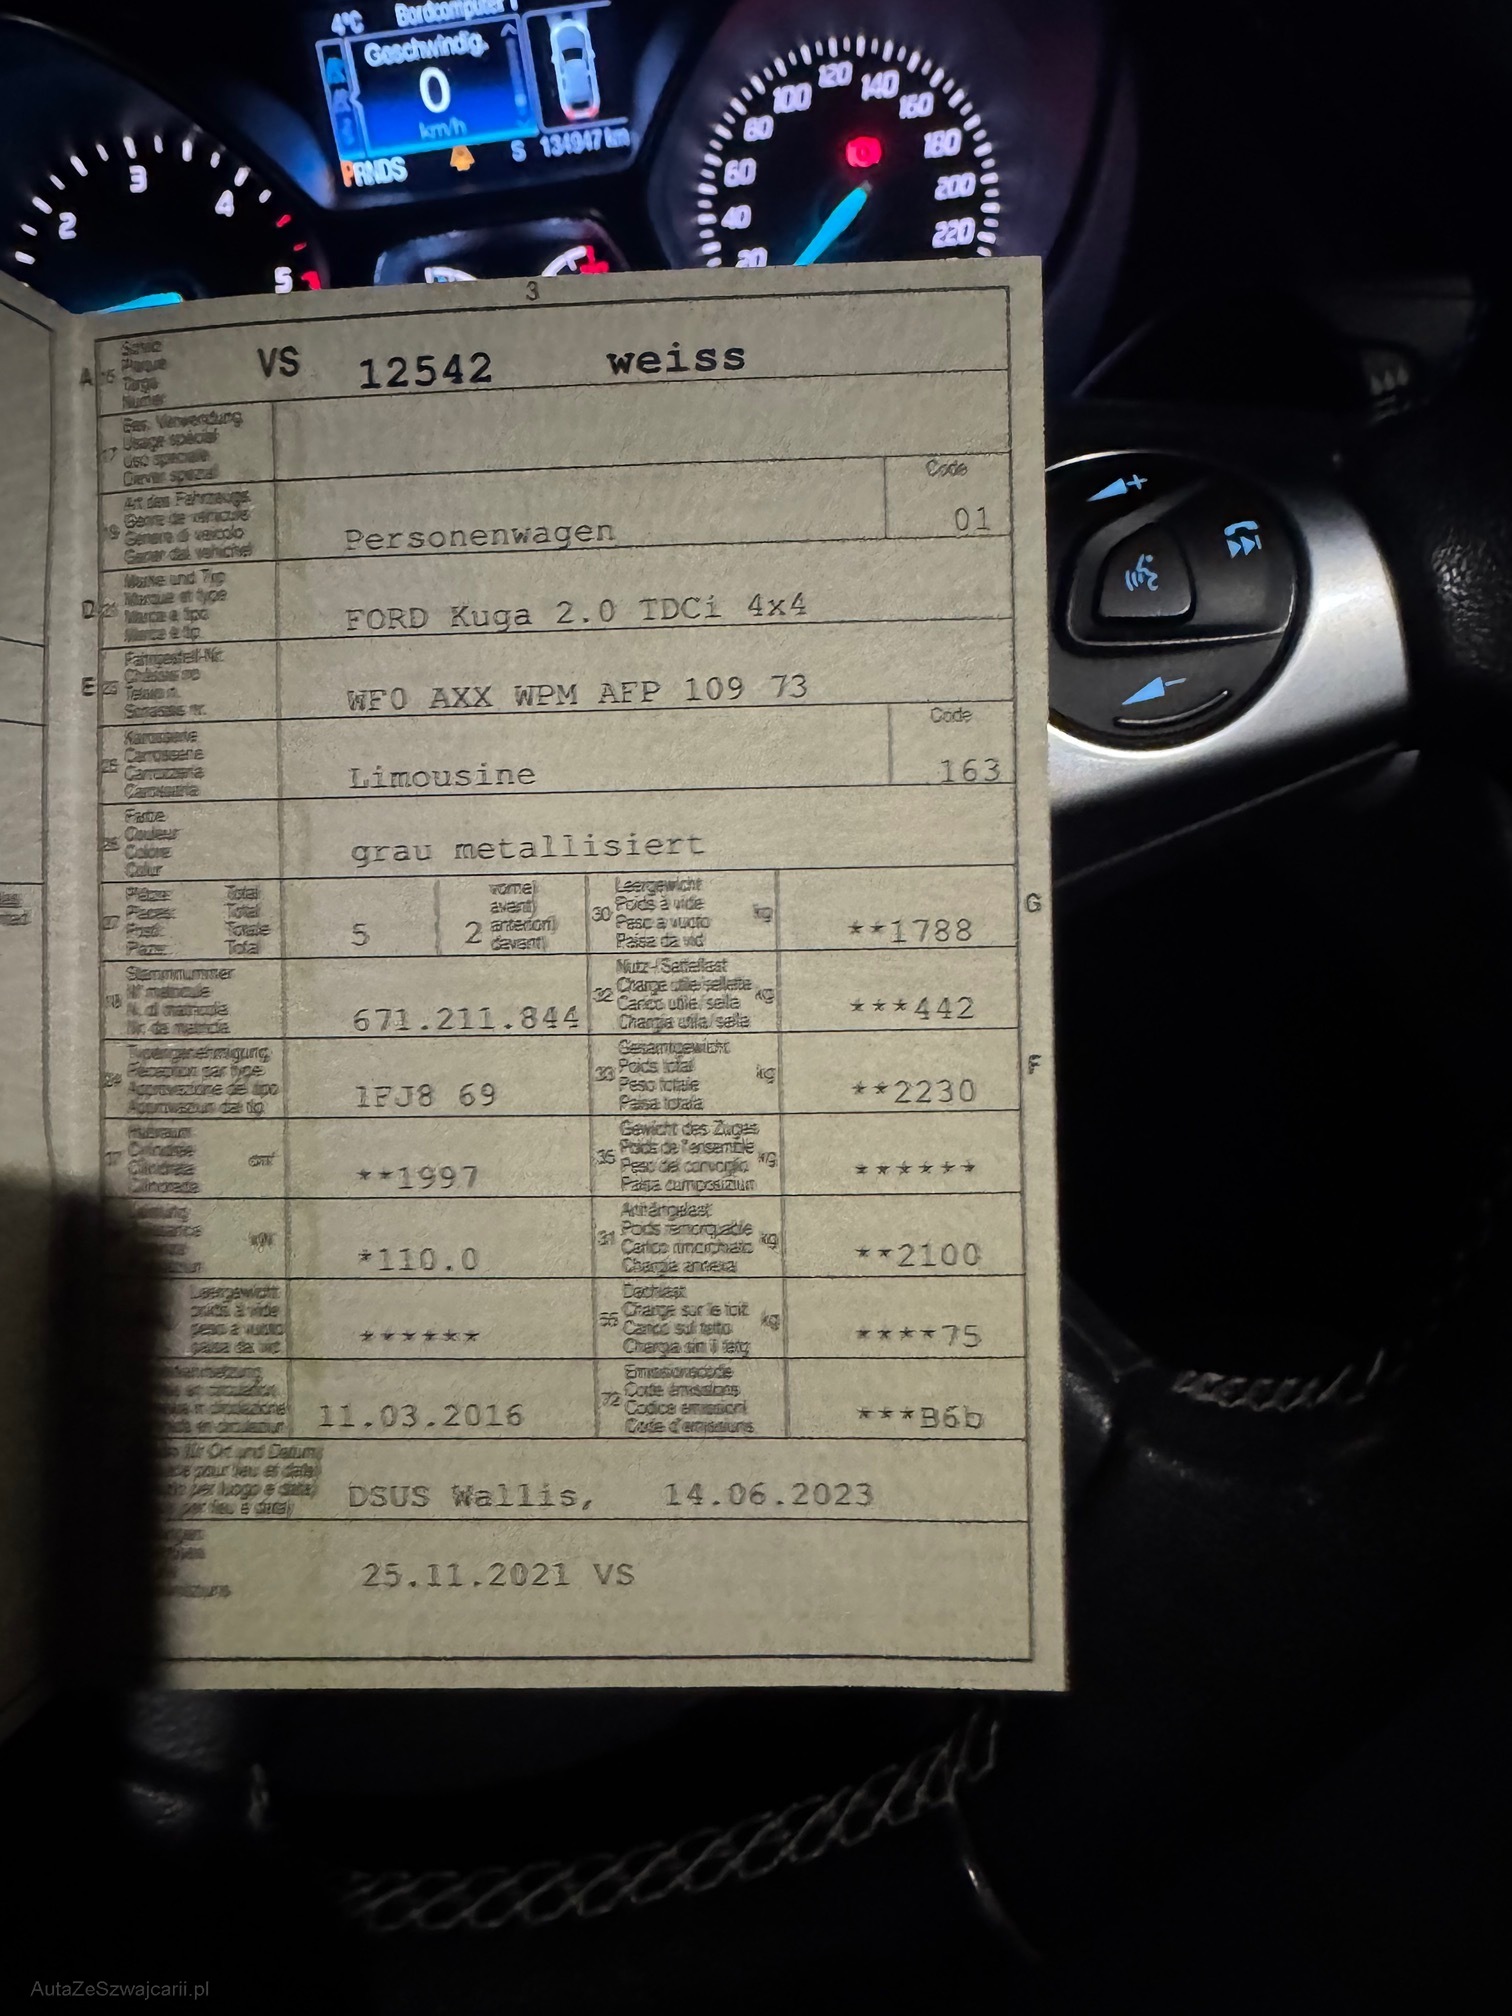 4°C Bordcomputer 1
Geschwindig.
0
km/h
PRNDS S 134947 km
2 3 4 5
20 40 60 80 100 120 140 160 180 200 220
3
A 15 Schild
Plaque
Targa
Numer
VS 12542 weiss
17 Bes. Verwendung
Usage spécial
Uso speciale
Diever spezial
19 Art des Fahrzeugs
Genre de véhicule
Genere di veicolo
Gener dal vehichel
Personenwagen
Code
01
D 21 Marke und Typ
Marque et type
Marca e tipo
Marca e tip
FORD Kuga 2.0 TDCi 4x4
E 23 Fahrgestell-Nr.
Châssis no
Telaio n.
Schassis nr.
WF0 AXX WPM AFP 109 73
25 Karosserie
Carrosserie
Carrozzeria
Carossaria
Limousine
Code
163
26 Farbe
Couleur
Colore
Colur
grau metallisiert
27 Plätze: Total
Places: Total
Posti: Totale
Plazs: Total
5
2
vorne)
avant)
anteriori)
davant)
30 Leergewicht
Poids à vide
Peso a vuoto
Paisa da vid
kg
**1788
G
18 Stammnummer
N° matricule
N. di matricola
Nr. da matricla
671.211.844
32 Nutz-/Sattellast
Charge utile/sellette
Carico utile/sella
Chargia utila/sella
kg
***442
24 Typengenehmigung
Réception par type
Approvazione del tipo
Approvaziun dal tip
1FJ8 69
33 Gesamtgewicht
Poids total
Peso totale
Paisa totala
kg
**2230
F
37 Hubraum
Cylindrée
Cilindrata
Cilindrada
cm³
**1997
35 Gewicht des Zuges
Poids de l'ensemble
Peso del convoglio
Paisa cumposiziun
kg
******
kW
*110.0
31 Anhängelast
Poids remorquable
Carico rimorchiato
Chargia annexa
kg
**2100
Leergewicht
poids à vide
peso a vuoto
paisa da vid
******
55 Dachlast
Charge sur le toit
Carico sul tetto
Chargia sin il tetg
kg
****75
11.03.2016
72 Emissionscode
Code émissions
Codice emissioni
Code d'emissiuns
***B6b
für Ort und Datum)
pour lieu et date)
per luogo e data)
per lieu e data)
DSUS Wallis, 14.06.2023
25.11.2021 VS
AutaZeSzwajcarii.pl